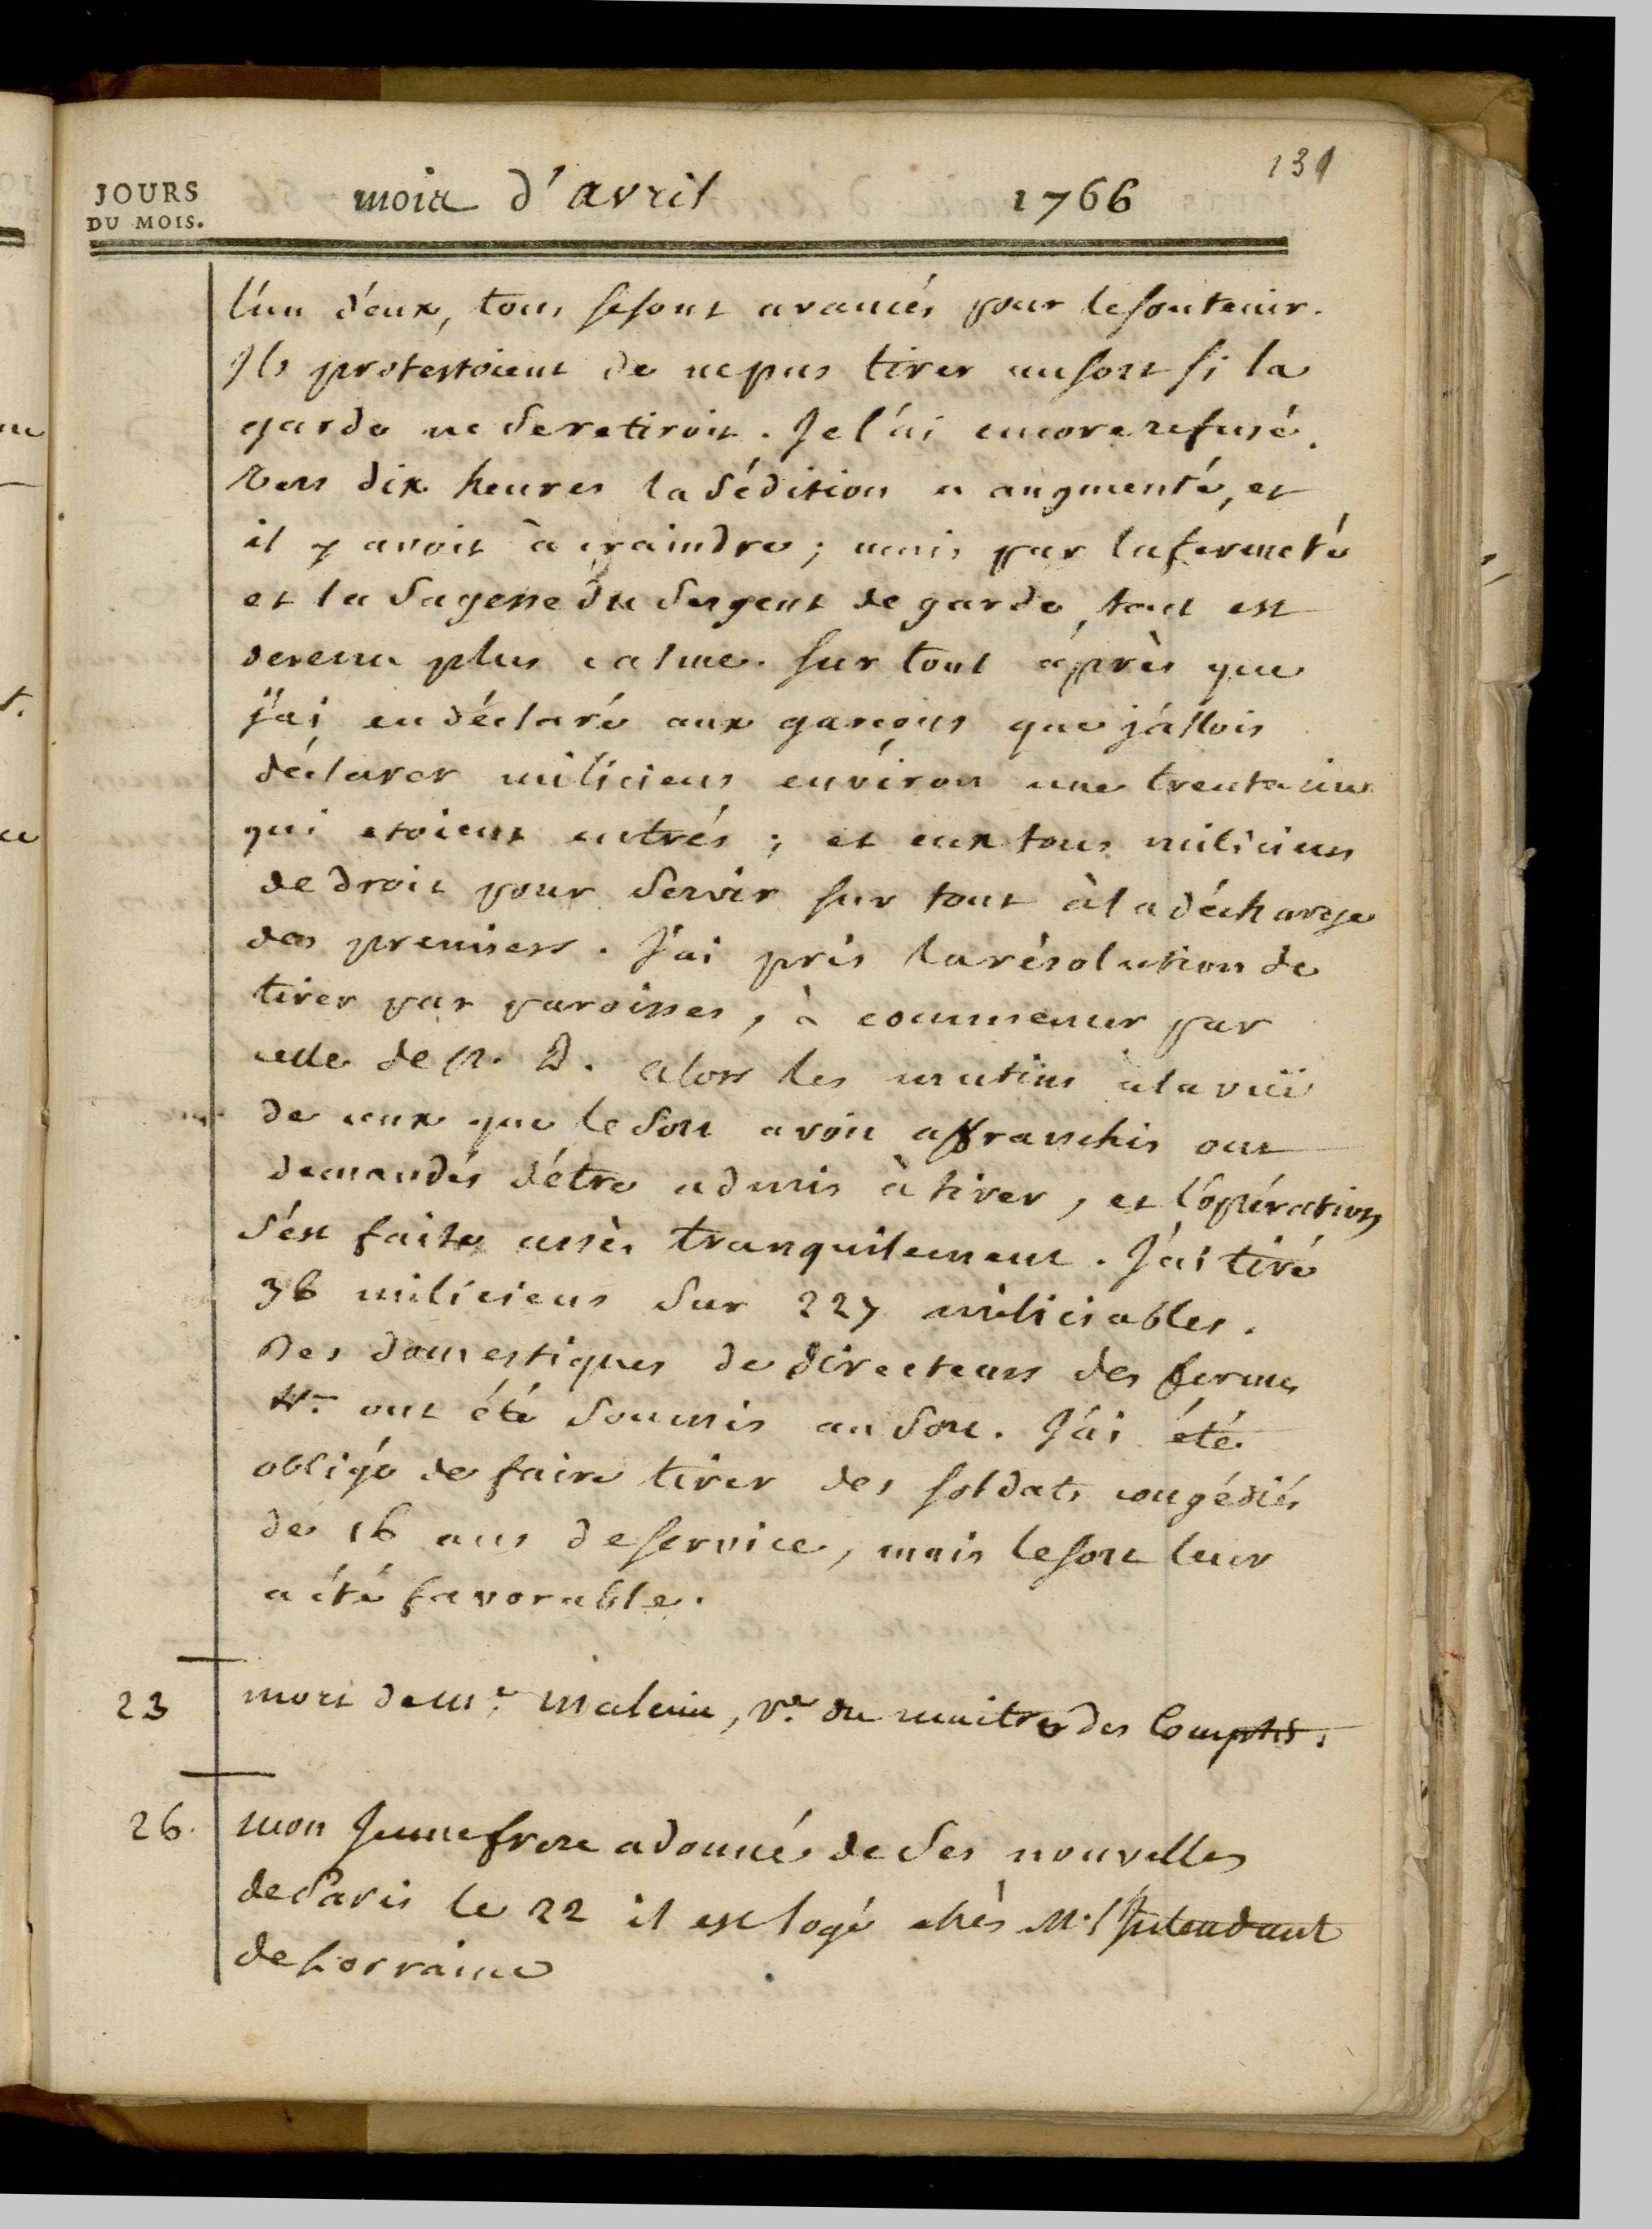 131
JOURS
DU MOIS.
mois d'avril 1766
l'un d'eux, tous se sont avancés pour le soutenir.
Ils protestoient de ne pas tirer au sort si la
garde ne se retiroit. Je l'ai encore refusé.
Vers dix heures la sédition a augmenté, et
il y avoit à craindre; mais par la fermeté
et la sagesse du sergent de garde, tout est
devenu plus calme. sur tout après que
j'ai eu déclaré aux garçons que j'allois
déclarer miliciens environ une trentaine
qui etoient entrés; et eux tous miliciens
de droit pour servir sur tout à la décharge
des premiers. J'ai pris la résolution de
tirer par paroisses, à commencer par
celle de N. D. alors les mutins à la vüe
de ceux que le sort avoit affranchis ont
demandés d'être admis à tirer, et l'opération
s'est faite assès tranquilement. J'ai tiré
36 miliciens sur 227 miliciables.
Des domestiques de directeurs des fermes
ont été soumis au sort. J'ai été
obligé de faire tirer des soldats congédiés
de 16 ans de service, mais le sort leur
a été favorable.
23 mort de Me. , Ve. du maitre des Comptes.
26. mon Jeune frere a donné de ses nouvelles
de Paris le 22 il est logé chès M. l'Intendant
de Lorraine